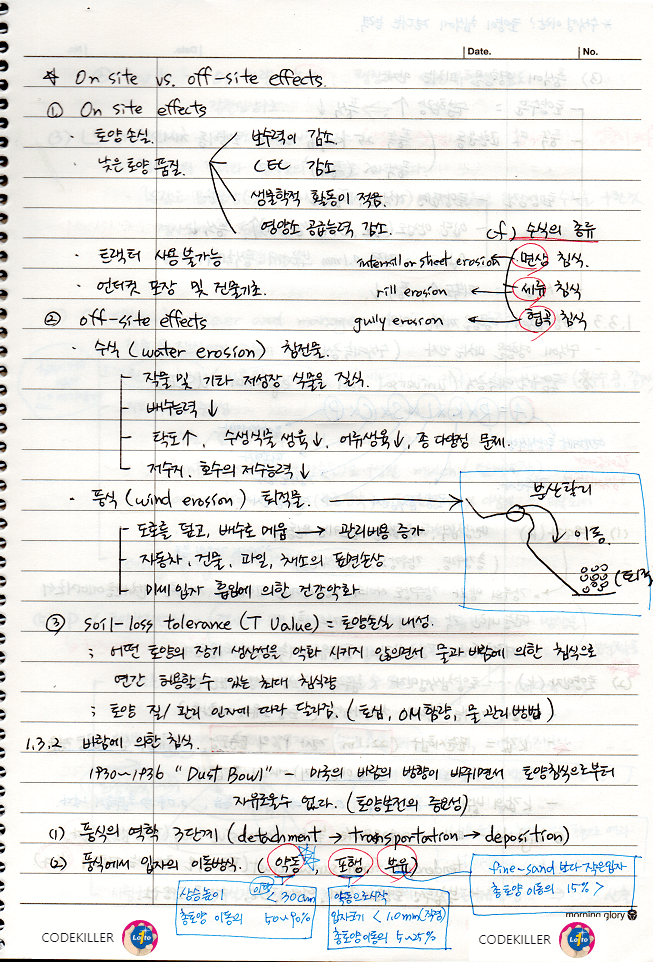 Date.
No.
* On site vs. off-site effects.
① On site effects
· 토양 손실.
보수력이 감소
· 낮은 토양 품질.
CEC 감소
생물학적 활동이 적음.
영양소 공급능력 감소.
cf) 수식의 종류
· 트랙터 사용 불가능
interrill or sheet erosion
면상 침식.
· 언더컷 포장 및 건물기초.
rill erosion
세류 침식
② off-site effects
gully erosion
협곡 침식
· 수식 (water erosion) 침전물.
작물 및 기타 저성장 식물을 질식.
배수능력 ↓
탁도↑, 수생식물 생육↓, 어류생육↓, 종 다양성 문제.
저수지, 호수의 저수능력 ↓
· 풍식 (wind erosion) 퇴적물.
부산탈리
도로를 덮고, 배수로 메움 → 관리비용 증가
이동.
자동차, 건물, 파일, 채소의 표면손상
(퇴적
미세입자 흡입에 의한 건강악화
③ soil-loss tolerance (T value) = 토양손실 내성.
; 어떤 토양의 장기 생산성을 악화 시키지 않으면서 물과 바람에 의한 침식으로
연간 허용할 수 있는 최대 침식량
; 토양 질/관리 인자에 따라 달라짐. (토심, OM함량, 물 관리 방법)
1.3.2 바람에 의한 침식.
1930~1936 "Dust Bowl" - 미국의 바람의 방향이 바뀌면서 토양침식으로부터
자유로울수 없다. (토양보전의 중요성)
(1) 풍식의 역학 3단계 (detachment → transportation → deposition)
(2) 풍식에서 입자의 이동방식. (약동, 포행, 부유)
상승높이 이동 < 30cm
총토양 이동의 50~90%
약동으로시작
입자크기 < 1.0mm (직경)
총토양이동의 5~25%
fine-sand 보다 작은입자
총토양 이동의 15% >
morning glory
CODEKILLER
Lotto
CODEKILLER
Lotto